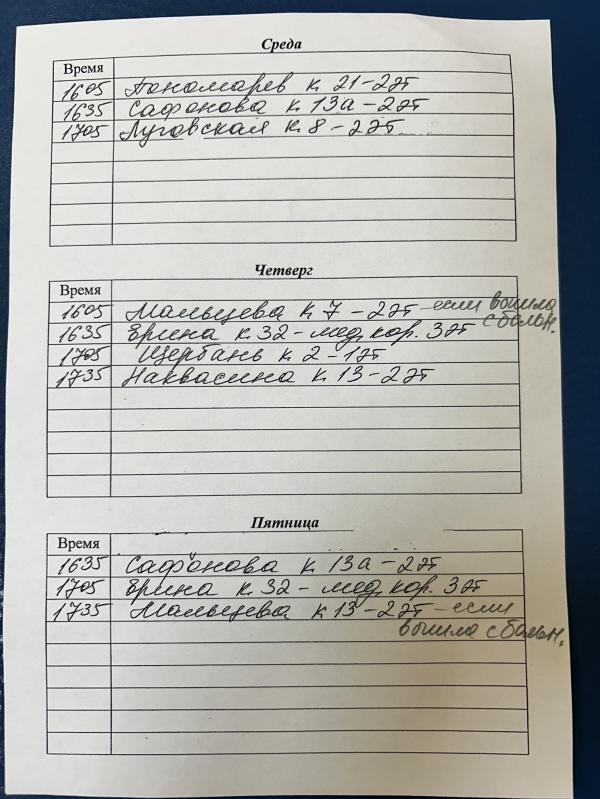 Среда
Время
1605 Пономарев к 21-2эт
1635 Сафонова к 13а-2эт
1705 Луговская к 8-2эт
Четверг
Время
1605 Мальцева к 7-2эт-если вышла с больн.
1635 Ерина к 32-мед. кор. 3эт
1705 Щербань к 2-1эт
1735 Наквасина к 13-2эт
Пятница
Время
1635 Сафонова к 13а-2эт
1705 Ерина к 32-мед. кор. 3эт
1735 Мальцева к 13-2эт-если
вышла с больн.